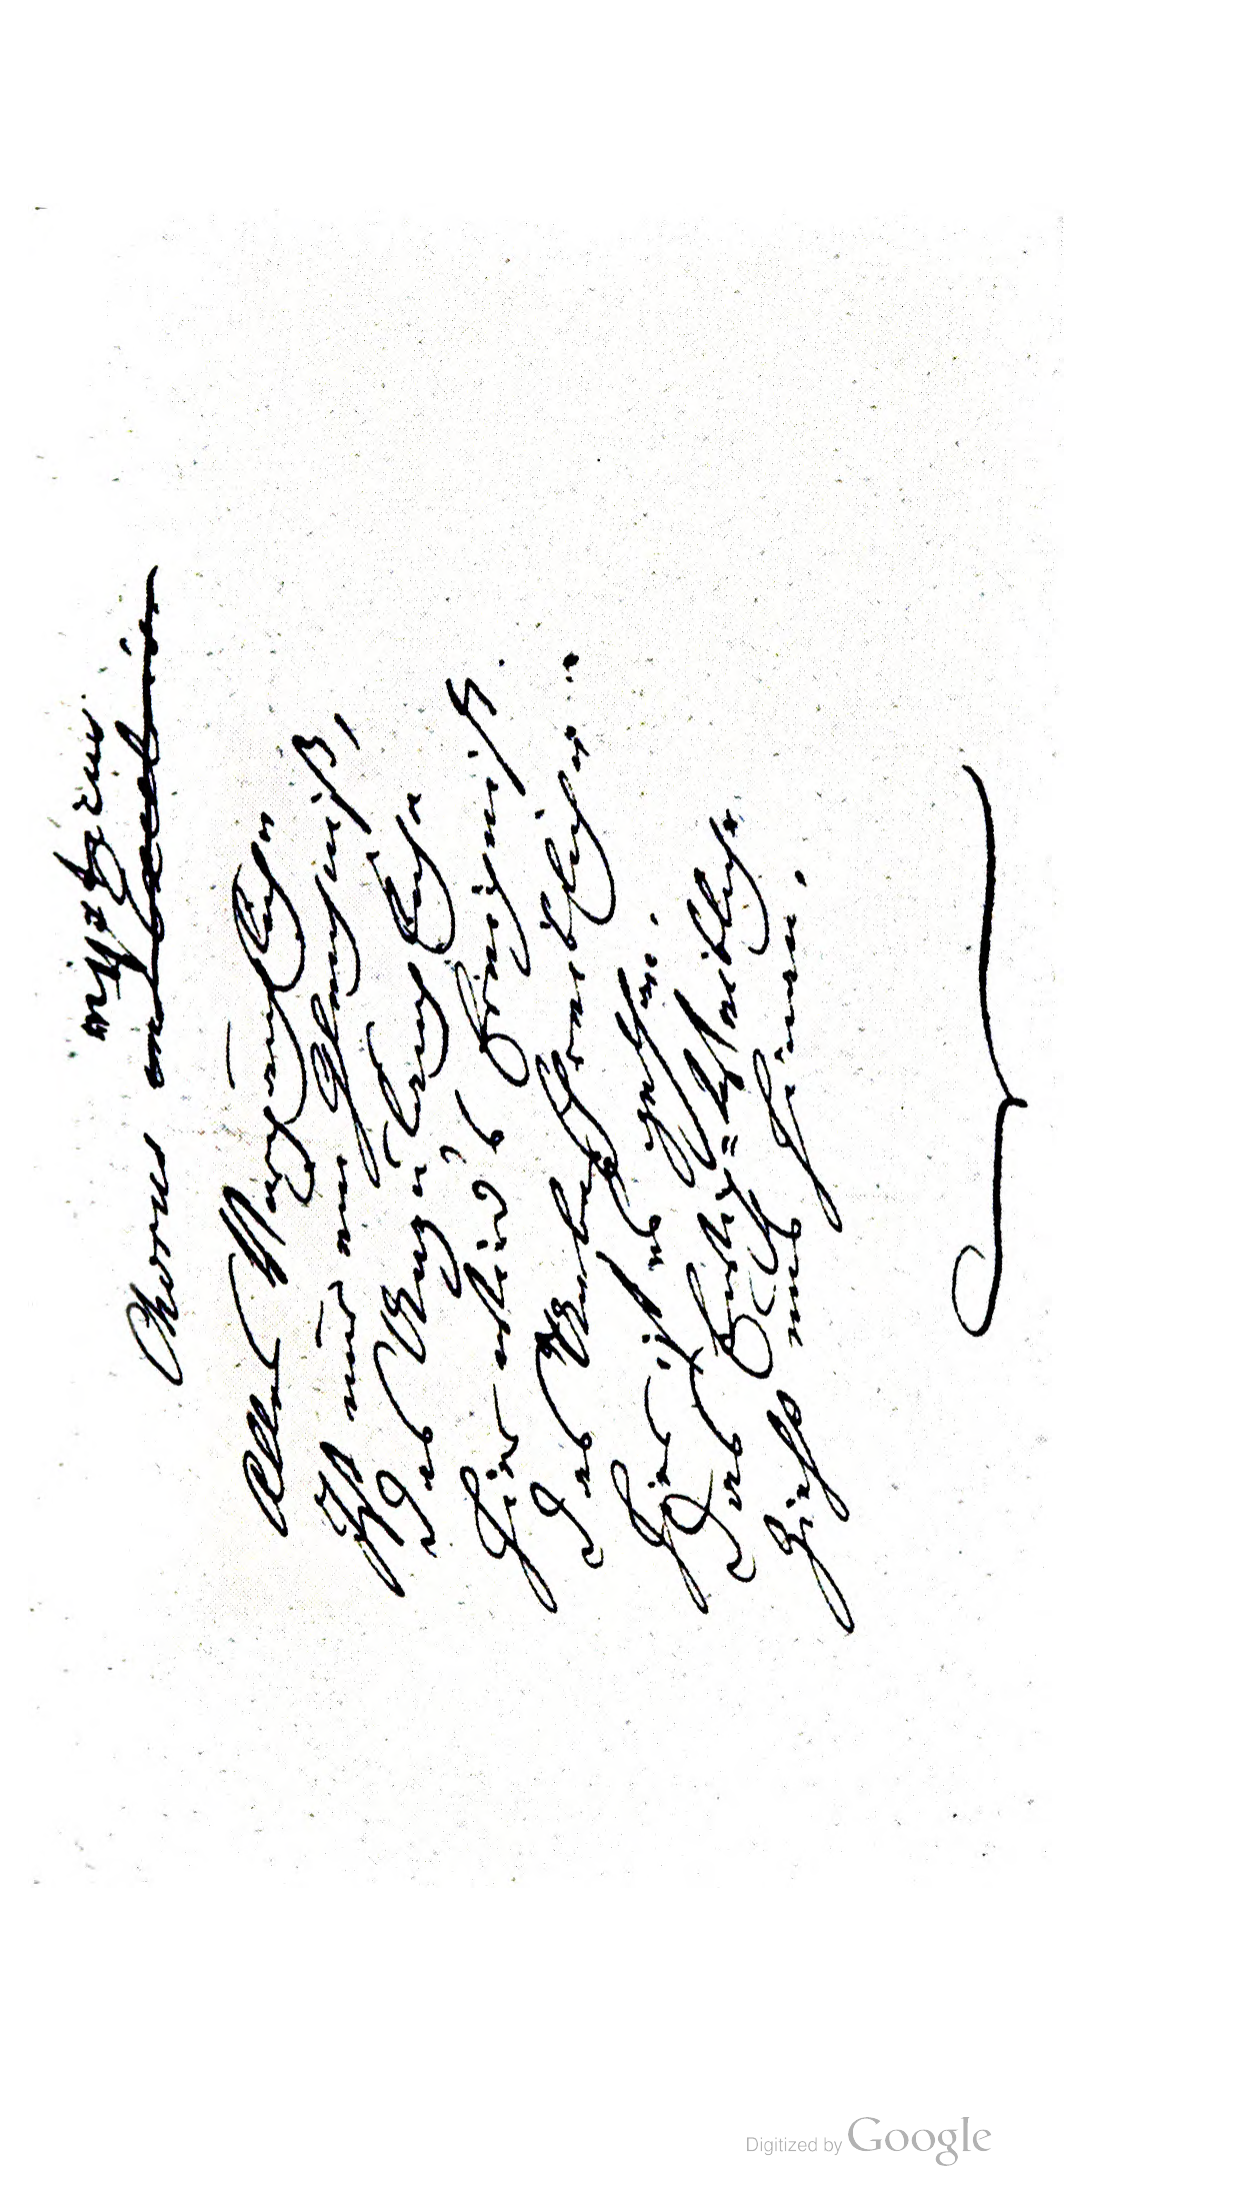 mysticus
Chorus in Excelsis
Alles Vergängliche
Ist nur ein Gleichniß,
Das Unzulängliche
Hier wird's Ereigniß.
Das Unbeschreibliche
Hier ist es gethan.
Das Ewig=Weibliche
Zieht uns hinan.
Digitized by Google